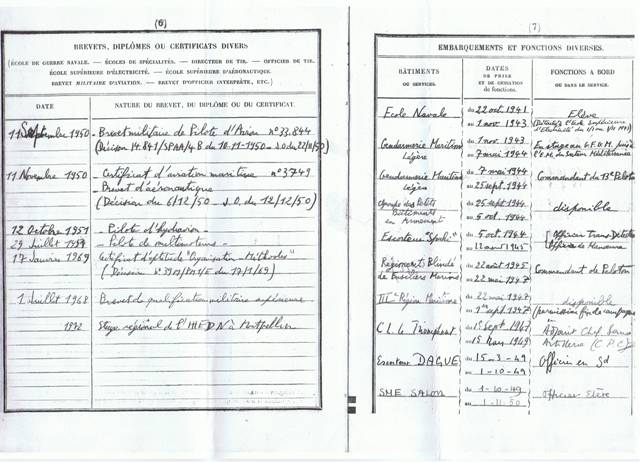 (6)
BREVETS, DIPLÔMES OU CERTIFICATS DIVERS
(ÉCOLE DE GUERRE NAVALE. — ÉCOLES DE SPÉCIALITÉS. — DIRECTEUR DE TIR. — OFFICIER DE TIR.
ÉCOLE SUPÉRIEURE D'ÉLECTRICITÉ. — ÉCOLE SUPÉRIEURE D'AÉRONAUTIQUE.
BREVET MILITAIRE D'AVIATION. — BREVET D'OFFICIER INTERPRÈTE, ETC.)
DATE
NATURE DU BREVET, DU DIPLÔME OU DU CERTIFICAT.
11 Septembre 1950 - Brevet militaire de Pilote d'Avion n° 33.844
(Décision 14.041/SPAA/4B du 10-11-1950 - J.O. du 22/11/50)
11 Novembre 1950 - Certificat d'aviation maritime n° 3749
- Brevet d'aéronautique
(Décision du 6/12/50 - J.O. du 12/12/50)
12 Octobre 1951 - Pilote d'hydravion -
29 Juillet - Pilote de multimoteurs -
17 Janvier 1969 Certificat d'aptitude "Organisation - Méthodes"
(Décision du 17/1/69)
1 Juillet 1968 Brevet de qualification militaire supérieure
Stage régional de l'IHEDN à Montpellier
(7)
EMBARQUEMENTS ET FONCTIONS DIVERSES.
BÂTIMENTS
OU SERVICES.
DATES
DE PRISE
ET DE CESSATION
de fonctions.
FONCTIONS A BORD
OU DANS LE SERVICE.
Ecole Navale
du 22 oct. 1941
au 1 nov. 1943
Elève
Gendarmerie Maritime
Légère
du 1 nov. 1943
au 7 mai 1944
En stage au
Gendarmerie Maritime
Légère
du 7 mai 1944
au 25 sept. 1944
Commandant du 13e Peloton
Groupe des Petits
Bâtiments
en Armement
du 25 sept. 1944
au 5 oct. 1944
disponible
Escorteur
du 5 oct. 1944
au 1945
Officier Trans Détection
Officier de Manœuvre
Régiment Blindé
de Fusiliers Marins
du 22 août 1945
au 22 mai 1947
Commandant de Peloton
IIIe Région Maritime
du 22 mai 1947
au 1er sept. 1947
disponible
(permission fin de campagne)
C.L. le Triomphant
du 1 Sept 1947
au 15 Mars 1949
Adjoint Chef Service
Artillerie (C.P.C)
Escorteur DAGUE
du 15-3-49
au 1-10-49
Officier en Sd
SME SALON
du 1-10-49
au 1-11-50
Officier Elève